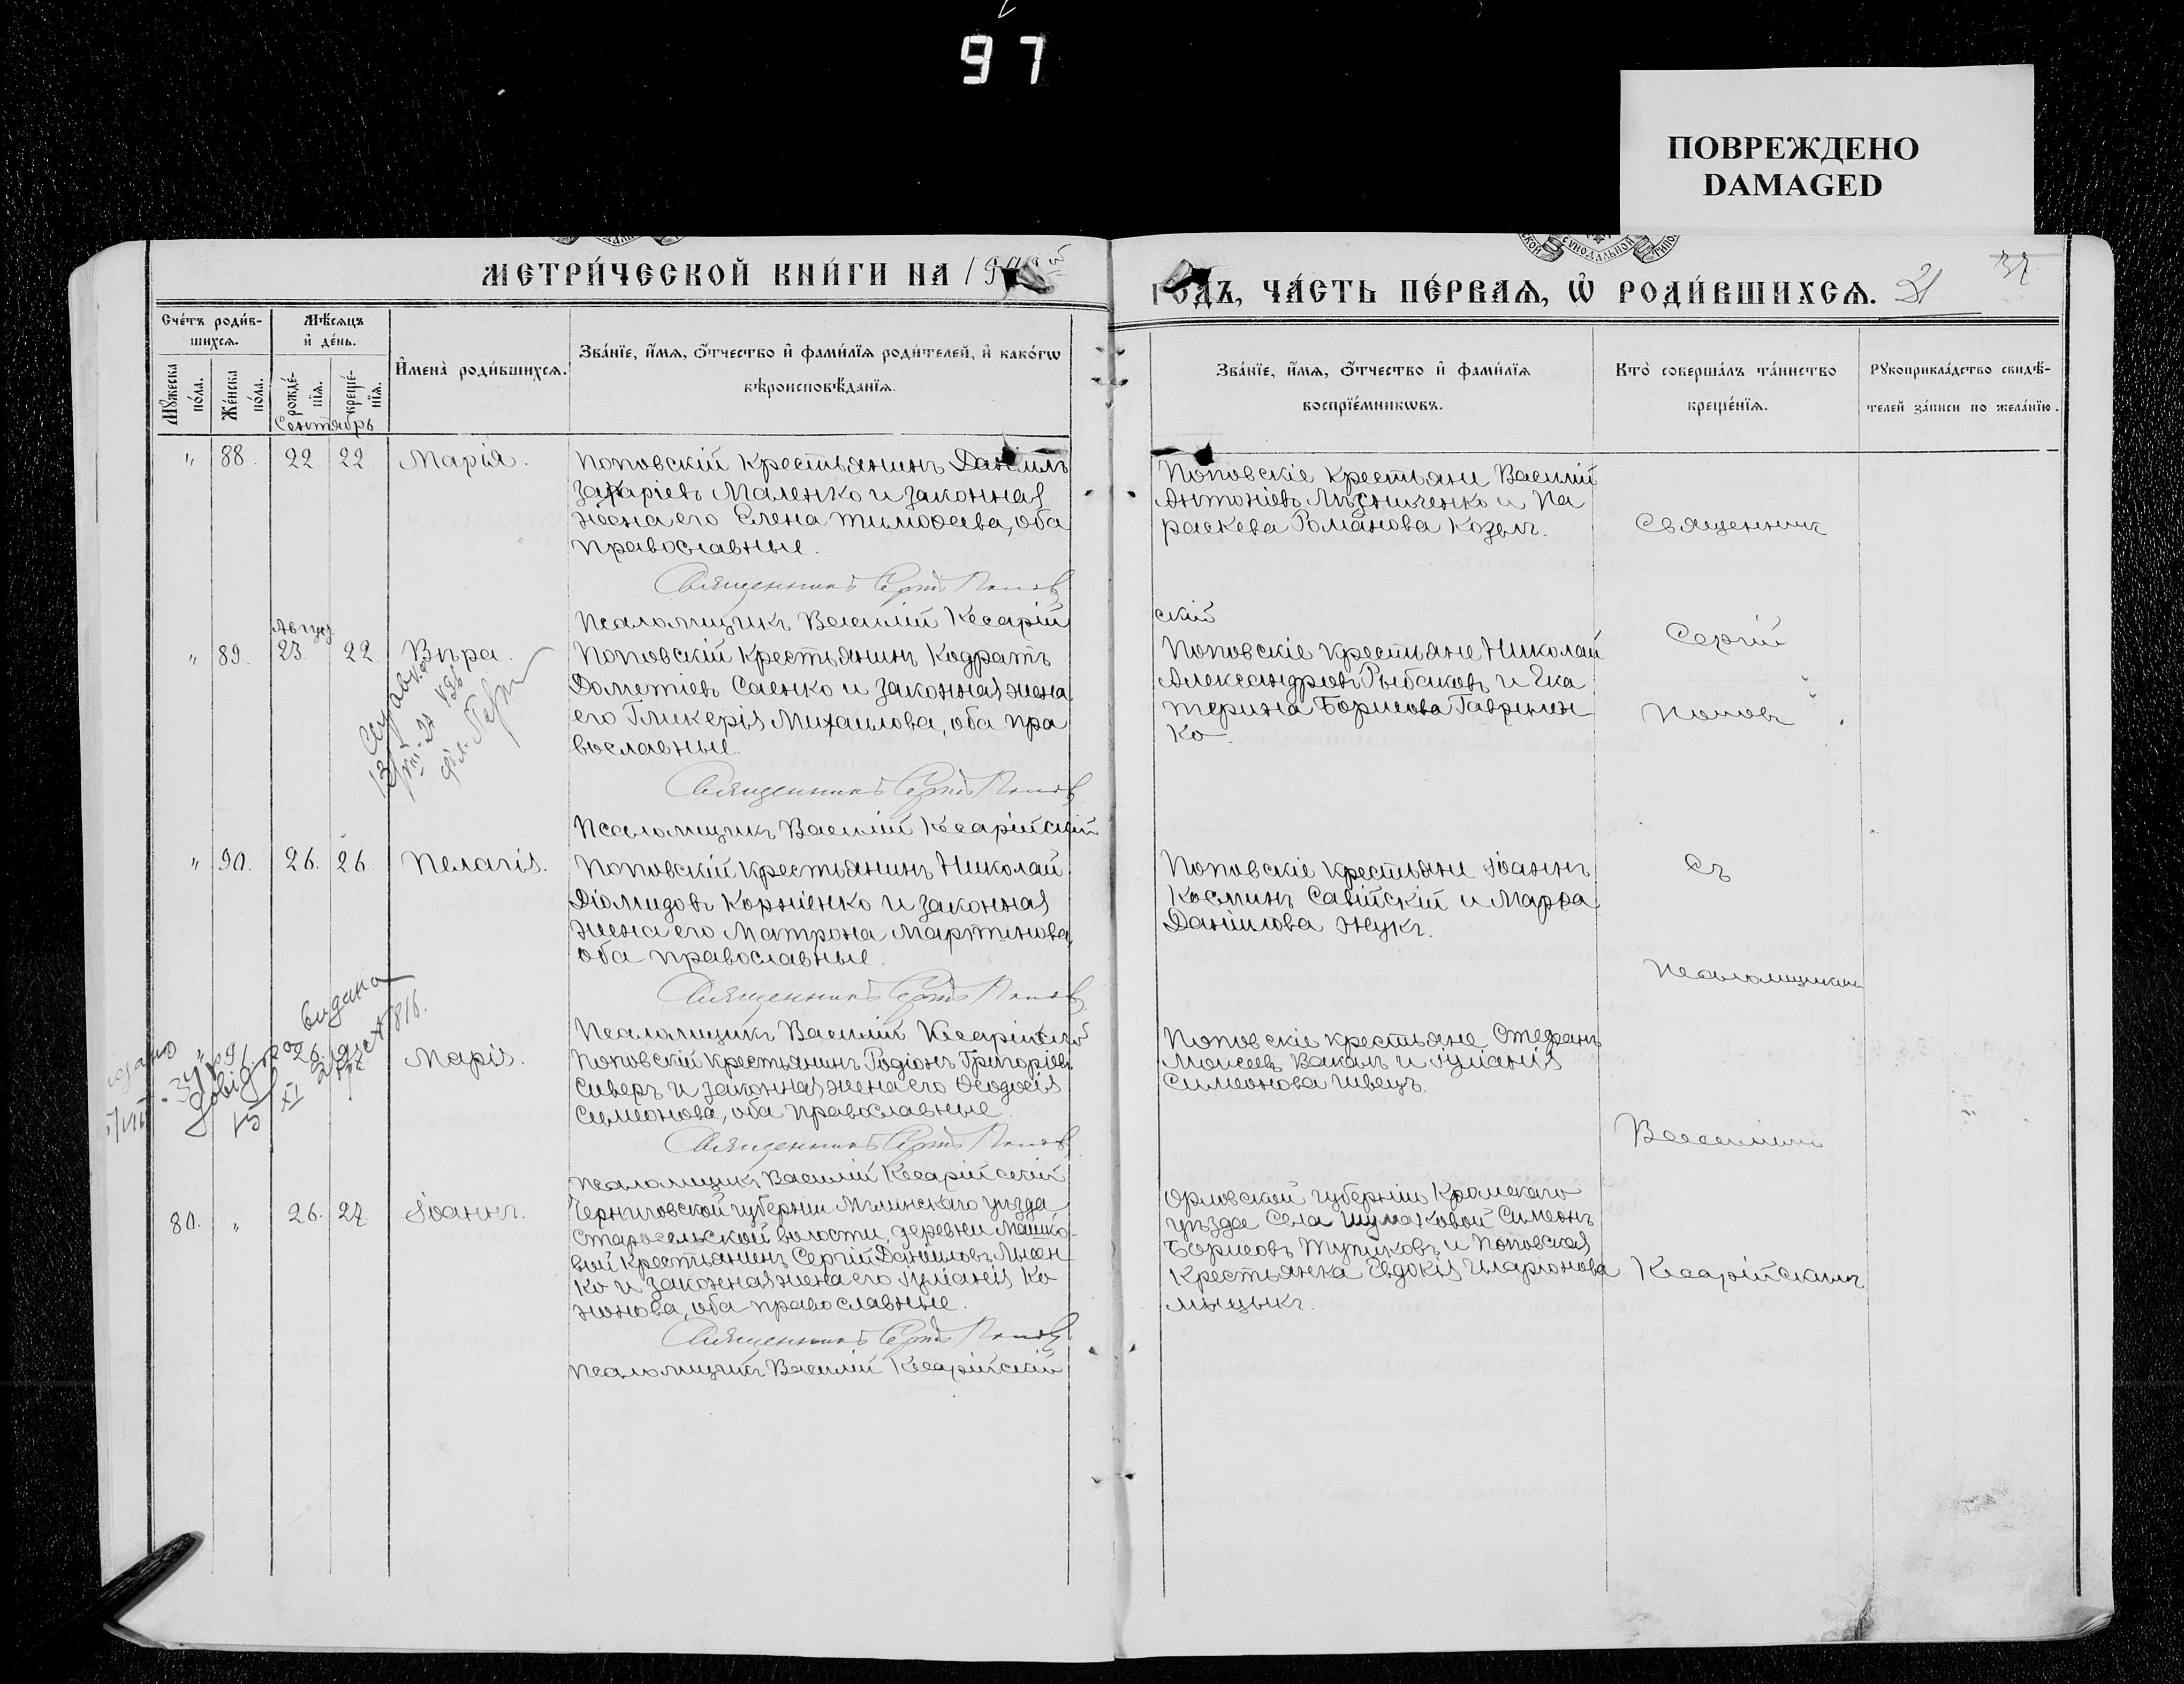 97
ПОВРЕЖДЕНО
DAMAGED
МЕТРИ́ЧЕСКОЙ КНИ́ГИ НА 19
ГОДЪ, ЧА́СТЬ ПЕ́РВАѦ, Ѡ҆ РОДИ́ВШИХСѦ. 21
37
Сче́тъ роди́вшихсѧ.
Мꙋ́жеска по́ла.
Же́нска по́ла.
Мѣ́сѧцъ и҆ де́нь.
рожде́нїѧ.
креще́нїѧ.
И҆мена̀ роди́вшихсѧ.
Зва́нїе, и҆́мѧ, ѻ҆́тчество и҆ фами́лїѧ роди́телей, и҆ како́гѡ
вѣроисповѣ́данїѧ.
Зва́нїе, и҆́мѧ, ѻ҆́тчество и҆ фами́лїѧ
воспрїе́мникѡвъ.
Кто̀ соверша́лъ та́инство
креще́нїѧ.
Рꙋкоприкла́дство свидѣ́-
телей за́писи по жела́нїю.
Сентябрь
" 88. 22 22 Марія.
Поповскій крестьянинъ Даніилъ
Захаріевъ Маленко и законная
жена его Елена Тимоѳеева, оба
православные.
Священникъ Сергій Поповъ
Псаломщикъ Василій Кесарій
скій
Поповскіе крестьяне Василій
Антоніевъ Лѣсниченко и Па
раскева Романова Козелъ.
Август
" 89. 23 22 Вѣра.
Поповскій крестьянинъ Кодратъ
Дометіевъ Саенко и законная жена
его Гликерія Михаилова, оба пра
вославные.
Священникъ Сергій Поповъ
Псаломщикъ Василій Кесарійскій
Поповскіе крестьяне Николай
Александровъ Рыбаковъ и Ека
терина Борисова Гавриленко
" 90. 26. 26. Пелагія.
Поповскій крестьянинъ Николай
Діомидовъ Корніенко и законная
жена его Матрона Мартинова,
оба православные.
Священникъ Сергій Поповъ
Псаломщикъ Василій Кесарійскій
Поповскіе крестьяне Іоаннъ
Косминъ Савійскій и Марѳа
Даніилова Жукъ.
" 91. 26. 27. Марія.
Поповскій крестьянинъ Родіонъ Григоріевъ
Сиверъ и законная жена его Ѳеодосія
Симеонова, оба православные.
Священникъ Сергій Поповъ
Псаломщикъ Василій Кесарійскій
Поповскіе крестьяне Стефанъ
Моисеевъ Вакалъ и Іуліанія
Симеонова Швецъ.
80. " 26. 27. Іоаннъ.
Черниговской губерніи Мглинскаго уѣзда
Старосельской волости, деревни Машко-
вой крестьянинъ Сергій Даніиловъ Лысен
ко и законная жена его Іуліанія Ко
нонова, оба православные.
Священникъ Сергій Поповъ
Псаломщикъ Василій Кесарійскій
Орловской губерніи Кромскаго
уѣзда села Шумаковой Симеонъ
Борисовъ Тупиковъ и Поповская
крестьянка Евдокія Иларіонова
Мыцыкъ.
Священникъ
Сергій
Поповъ
съ
псаломщикомъ
Василіемъ
Кесарійскимъ